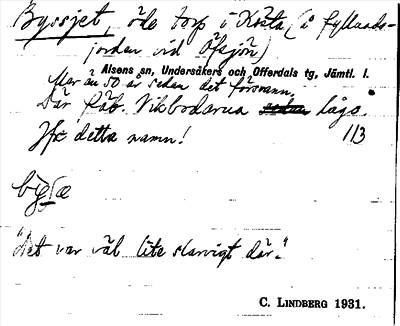 Byssjet, öde torp i Kösta (å fyllnads-
jorden vid Öfsjön)
Alsens sn, Undersåkers och Offerdals tg, Jämtl. l.
Mer än 50 år sedan det försvann.
Där fäb. Vikbodarna låge.
Jfr detta namn! 113
"Det var väl lite slarvigt där."
C. LINDBERG 1931.